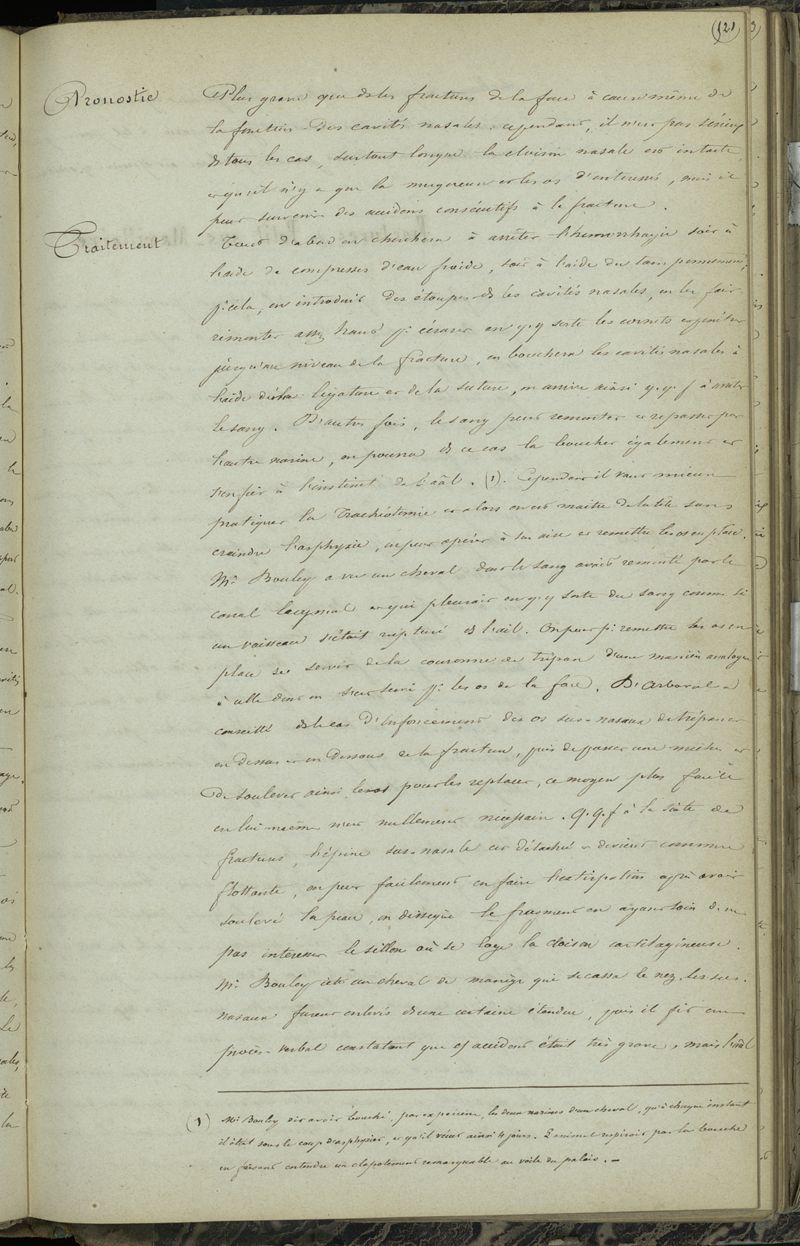 (121)
Pronostic
Plus grave que ds les fractures de la face à cause même de
la fonction des cavités nasales, cependant, il n'est pas sérieux
ds tous les cas, surtout lorsque la cloison nasale est intacte
et qu'il n'y a que la muqueuse et les os d'intéressés, mais il
peut survenir des accidens consécutifs à la fracture.
Traitement
Tout d'abord on cherchera à arrêter l'hémorrhagie soit à
l'aide de compresses d'eau froide, soit à l'aide du tamponnement,
pr cela, on introduit des étoupes ds les cavités nasales, on les fait
remonter assez haut pr écraser en q.q sorte les cornets et pénétrer
jusqu'au niveau de la fracture, on bouchera les cavités nasales à
l'aide de la ligature et de la suture, on arrive ainsi q.q.f à arrêter
le sang. D'autres fois, le sang peut remonter et repasser par
l'autre narine, on pourra ds ce cas la boucher également et
s'en fier à l'instinct de l'aâl. (1). Cependant il vaut mieux
pratiquer la Trachéotomie et alors on est maître de la tête sans
craindre l'asphyxie, on peut opérer à son aise et remettre les os en place.
Mr Bouley a vu un cheval dont le sang avait remonté par le
canal lacrymal et qui pleurait en q.q sorte du sang comme si
un vaisseau s'était rupturé ds l'œil. On peut pr remettre les os en
place se servir de la couronne de trépan d'une manière analogue
à celle dont on s'est servi pr les os de la face. D'Arboval a
conseillé ds le cas d'enfoncement des os sus-nasaux de trépaner
en dessus et en dessous de la fracture, puis de passer une mèche et
de soulever ainsi les os pour les replacer, ce moyen plus facile
en lui-même n'est nullement nécessaire. q.q.f à la suite de
fractures, l'épine sus-nasale est détachée et devient comme
flottante, on peut facilement en faire l'extirpation après avoir
soulevé la peau, on dissèque le fragment en ayant soin de ne
pas intéresser le sillon où se loge la cloison cartilagineuse.
Mr Bouley cite un cheval de manège qui se cassa le nez. Les sus-
nasaux furent enlevés ds une certaine étendue, puis il fit un
procès-verbal constatant que cet accident était très grave, mais l'aâl
(1) Mr Bouley dit avoir bouché, par expérience, les deux narines d'un cheval, qu'à chaque instant
il était sous le coup d'asphyxier, et qu'il vécut ainsi 4 jours. L'animal respirait par la bouche
en faisant entendre un clapotement remarquable au voile du palais. —